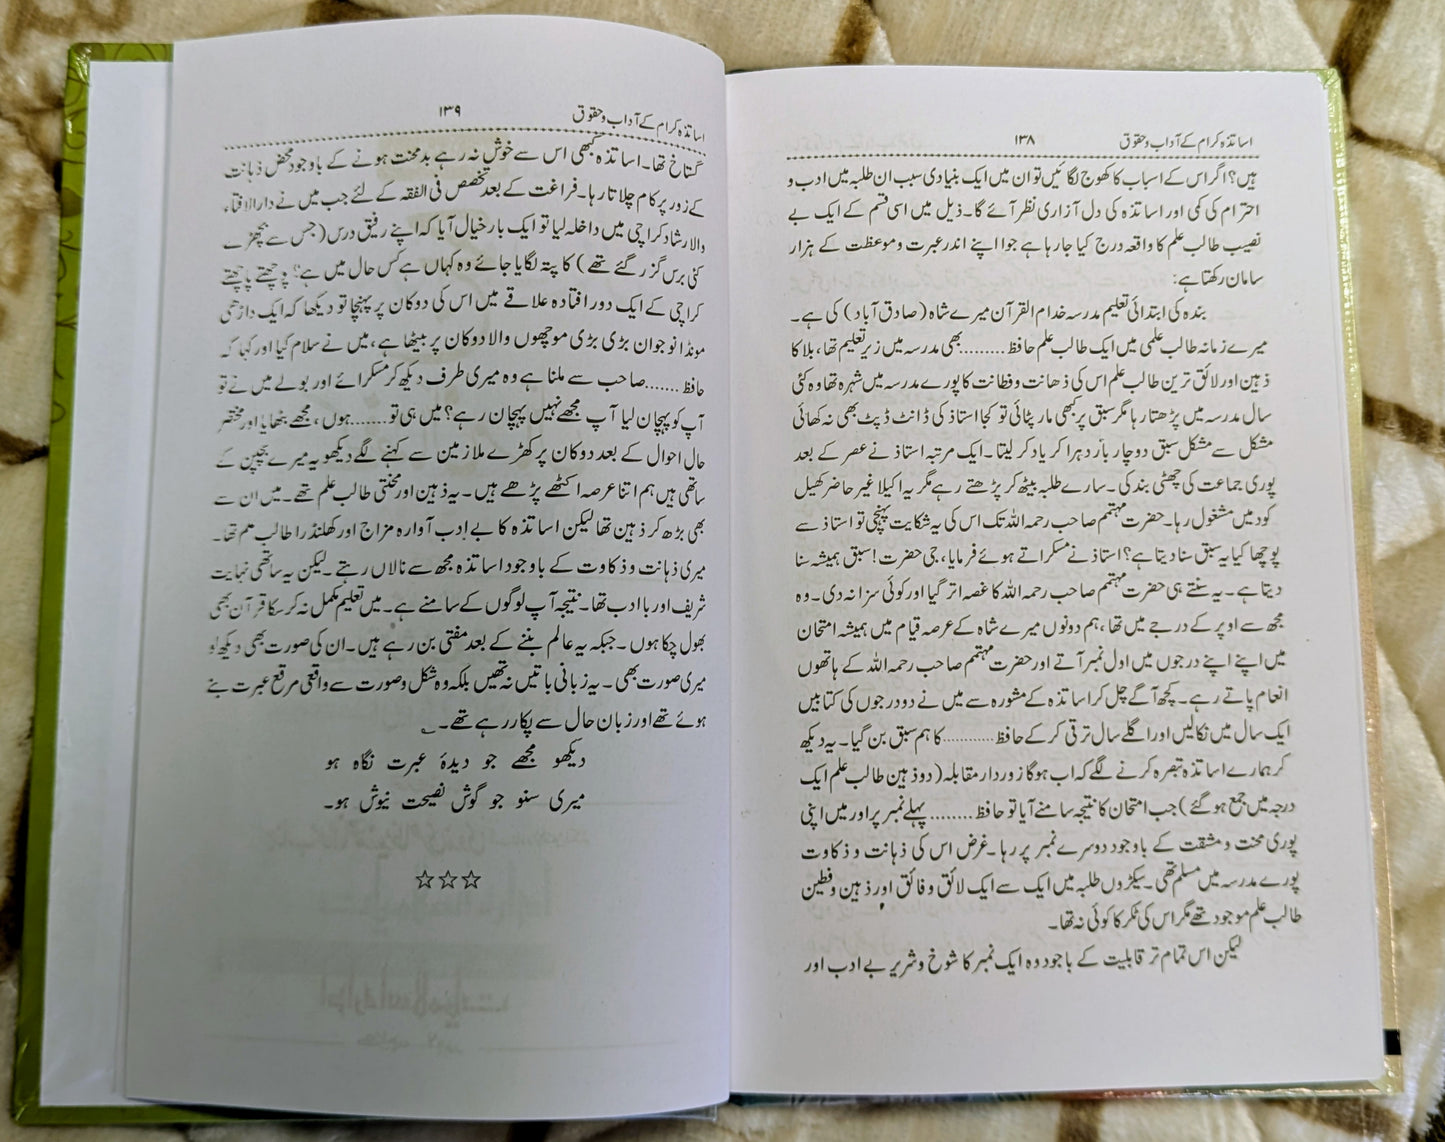 اساتذہ کرام کے آداب و حقوق ۱۳۸
ہیں؟ اگر اس کے اسباب کا کھوج لگائیں تو ان میں ایک بنیادی سبب ان طلبہ میں ادب و
احترام کی کمی اور اساتذہ کی دل آزاری نظر آئے گا۔ ذیل میں اسی قسم کے ایک بے
نصیب طالب علم کا واقعہ درج کیا جارہا ہے جو اپنے اندر عبرت و موعظت کے ہزار
سامان رکھتا ہے:
بندہ کی ابتدائی تعلیم مدرسہ خدام القرآن میرے شاہ (صادق آباد) کی ہے۔
میرے زمانہ طالب علمی میں ایک طالب علم حافظ ......... بھی مدرسہ میں زیر تعلیم تھا، بلا کا
ذہین اور لائق ترین طالب علم اس کی ذھانت و فطانت کا پورے مدرسہ میں شہرہ تھا وہ کئی
سال مدرسہ میں پڑھتا رہا مگر سبق پر کبھی مار پٹائی تو کجا استاذ کی ڈانٹ ڈپٹ بھی نہ کھائی
مشکل سے مشکل سبق دو چار بار دہرا کر یاد کر لیتا۔ ایک مرتبہ استاذ نے عصر کے بعد
پوری جماعت کی چھٹی بند کی۔ سارے طلبہ بیٹھ کر پڑھتے رہے مگر یہ اکیلا غیر حاضر کھیل
کود میں مشغول رہا۔ حضرت مہتمم صاحب رحمہ اللہ تک اس کی یہ شکایت پہنچی تو استاذ سے
پوچھا کیا یہ سبق سنا دیتا ہے؟ استاذ نے مسکراتے ہوئے فرمایا، جی حضرت! سبق ہمیشہ سنا
دیتا ہے۔ یہ سنتے ہی حضرت مہتمم صاحب رحمہ اللہ کا غصہ اتر گیا اور کوئی سزا نہ دی۔ وہ
مجھ سے اوپر کے درجے میں تھا، ہم دونوں میرے شاہ کے عرصہ قیام میں ہمیشہ امتحان
میں اپنے اپنے درجوں میں اول نمبر آتے اور حضرت مہتمم صاحب رحمہ اللہ کے ہاتھوں
انعام پاتے رہے۔ کچھ آگے چل کر اساتذہ کے مشورہ سے میں نے دو درجوں کی کتابیں
ایک سال میں نکالیں اور اگلے سال ترقی کر کے حافظ ............ کا ہم سبق بن گیا۔ یہ دیکھ
کر ہمارے اساتذہ تبصرہ کرنے لگے کہ اب ہوگا زوردار مقابلہ (دو ذہین طالب علم ایک
درجہ میں جمع ہو گئے) جب امتحان کا نتیجہ سامنے آیا تو حافظ ........ پہلے نمبر پر اور میں اپنی
پوری محنت و مشقت کے باوجود دوسرے نمبر پر رہا۔ غرض اس کی ذہانت و ذکاوت
پورے مدرسہ میں مسلم تھی۔ سیکڑوں طلبہ میں ایک سے ایک لائق و فائق اور ذہین و فطین
طالب علم موجود تھے مگر اس کی ٹکر کا کوئی نہ تھا۔
لیکن اس تمام تر قابلیت کے باجود وہ ایک نمبر کا شوخ و شریر بے ادب اور
اساتذہ کرام کے آداب و حقوق ۱۳۹
گستاخ تھا۔ اساتذہ کبھی اس سے خوش نہ رہے بد محنت ہونے کے باوجود محض ذہانت
کے زور پر کام چلاتا رہا۔ فراغت کے بعد تخصص فی الفقہ کے لئے جب میں نے دارالافتاء
والارشاد کراچی میں داخلہ لیا تو ایک بار خیال آیا کہ اپنے رفیق درس (جس سے بچھڑے
کئی برس گزر گئے تھے) کا پتہ لگایا جائے وہ کہاں ہے کس حال میں ہے؟ پوچھتے پاچھتے
کراچی کے ایک دور افتادہ علاقے میں اس کی دوکان پر پہنچا تو دیکھا کہ ایک داڑھی
مونڈا نوجوان بڑی بڑی موچھوں والا دوکان پر بیٹھا ہے، میں نے سلام کیا اور کہا کہ
حافظ ....... صاحب سے ملنا ہے وہ میری طرف دیکھ کر مسکرائے اور بولے میں نے تو
آپ کو پہچان لیا آپ مجھے نہیں پہچان رہے؟ میں ہی تو ....... ہوں، مجھے بٹھایا اور مختصر
حال احوال کے بعد دوکان پر کھڑے ملازمین سے کہنے لگے دیکھو یہ میرے بچپن کے
ساتھی ہیں ہم اتنا عرصہ اکٹھے پڑھے ہیں۔ یہ ذہین اور محنتی طالب علم تھے۔ میں ان سے
بھی بڑھ کر ذہین تھا لیکن اساتذہ کا بے ادب آوارہ مزاج اور کھلنڈرا طالب علم تھا۔
میری ذہانت و ذکاوت کے باوجود اساتذہ مجھ سے نالاں رہتے۔ لیکن یہ ساتھی نہایت
شریف اور با ادب تھا۔ نتیجہ آپ لوگوں کے سامنے ہے۔ میں تعلیم مکمل نہ کر سکا قرآن بھی
بھول چکا ہوں۔ جبکہ یہ عالم بننے کے بعد مفتی بن رہے ہیں۔ ان کی صورت بھی دیکھ لو
میری صورت بھی۔ یہ زبانی باتیں نہ تھیں بلکہ وہ شکل و صورت سے واقعی مرقع عبرت بنے
ہوئے تھے اور زبان حال سے پکار رہے تھے۔ ؎
دیکھو مجھے جو دیدۂ عبرت نگاہ ہو
میری سنو جو گوش نصیحت نیوش ہو۔
☆☆☆